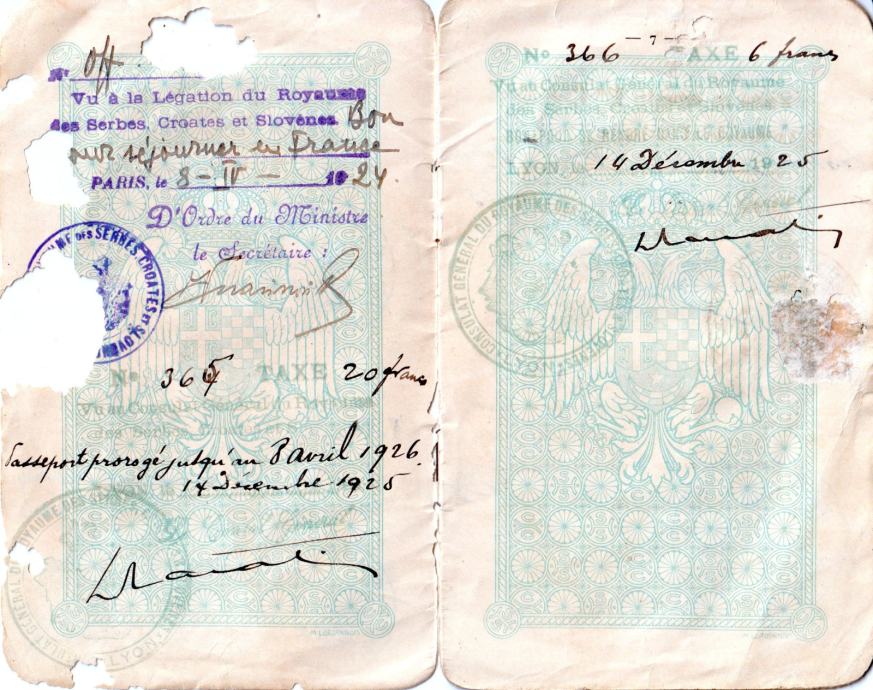 No
Vu à la Légation du Royaume
des Serbes, Croates et Slovènes Bon
pour séjourner en France
PARIS, le 8-IV- 1924.
D'Ordre du Ministre
le Secrétaire :
ROYAUME DES SERBES, CROATES ET SLOVÈNES
No 365 TAXE 20 francs
Vu au Consulat Général du Royaume
des Serbes
Passeport prorogé jusqu'au 8 avril 1926.
14 Decembre 1925
LYON
CONSULAT GÉNÉRAL DU ROYAUME DES
LYON
-7-
No 366 TAXE 6 francs
Vu au Consulat Général du Royaume
des Serbes, Croates et Slovènes
BON POUR SE RENDRE
LYON, le 14 Décembre 1925
CONSULAT GÉNÉRAL DU ROYAUME DES SERBES